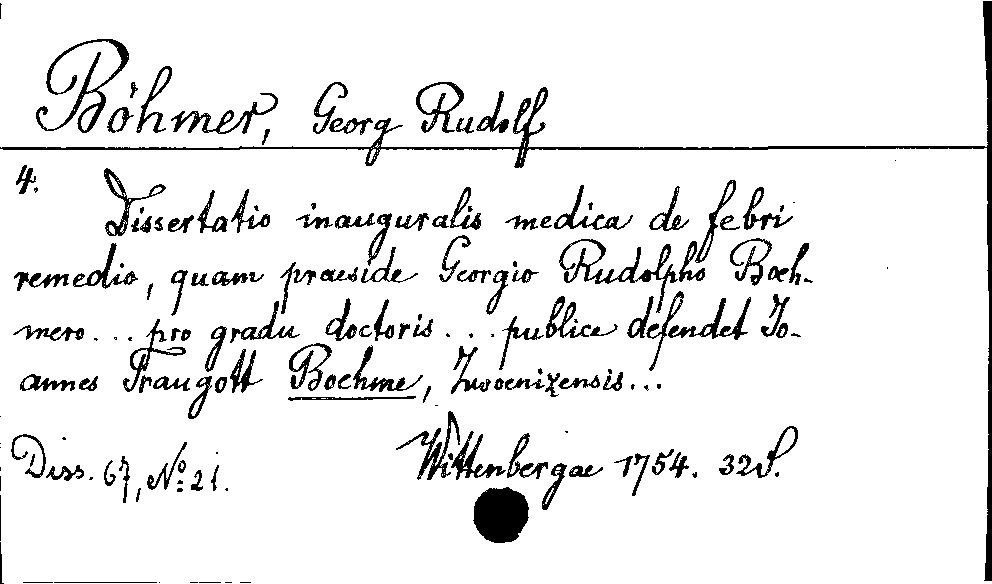 Böhmer, Georg Rudolf
4.
Dissertatio inauguralis medica de febri
remedio, quam praeside Georgio Rudolpho Boeh-
mero... pro gradu doctoris... publice defendet Jo-
annes Traugott Boehme, Zwoenizensis...
Diss. 67, No: 21. Wittenbergae 1754. 32 S.